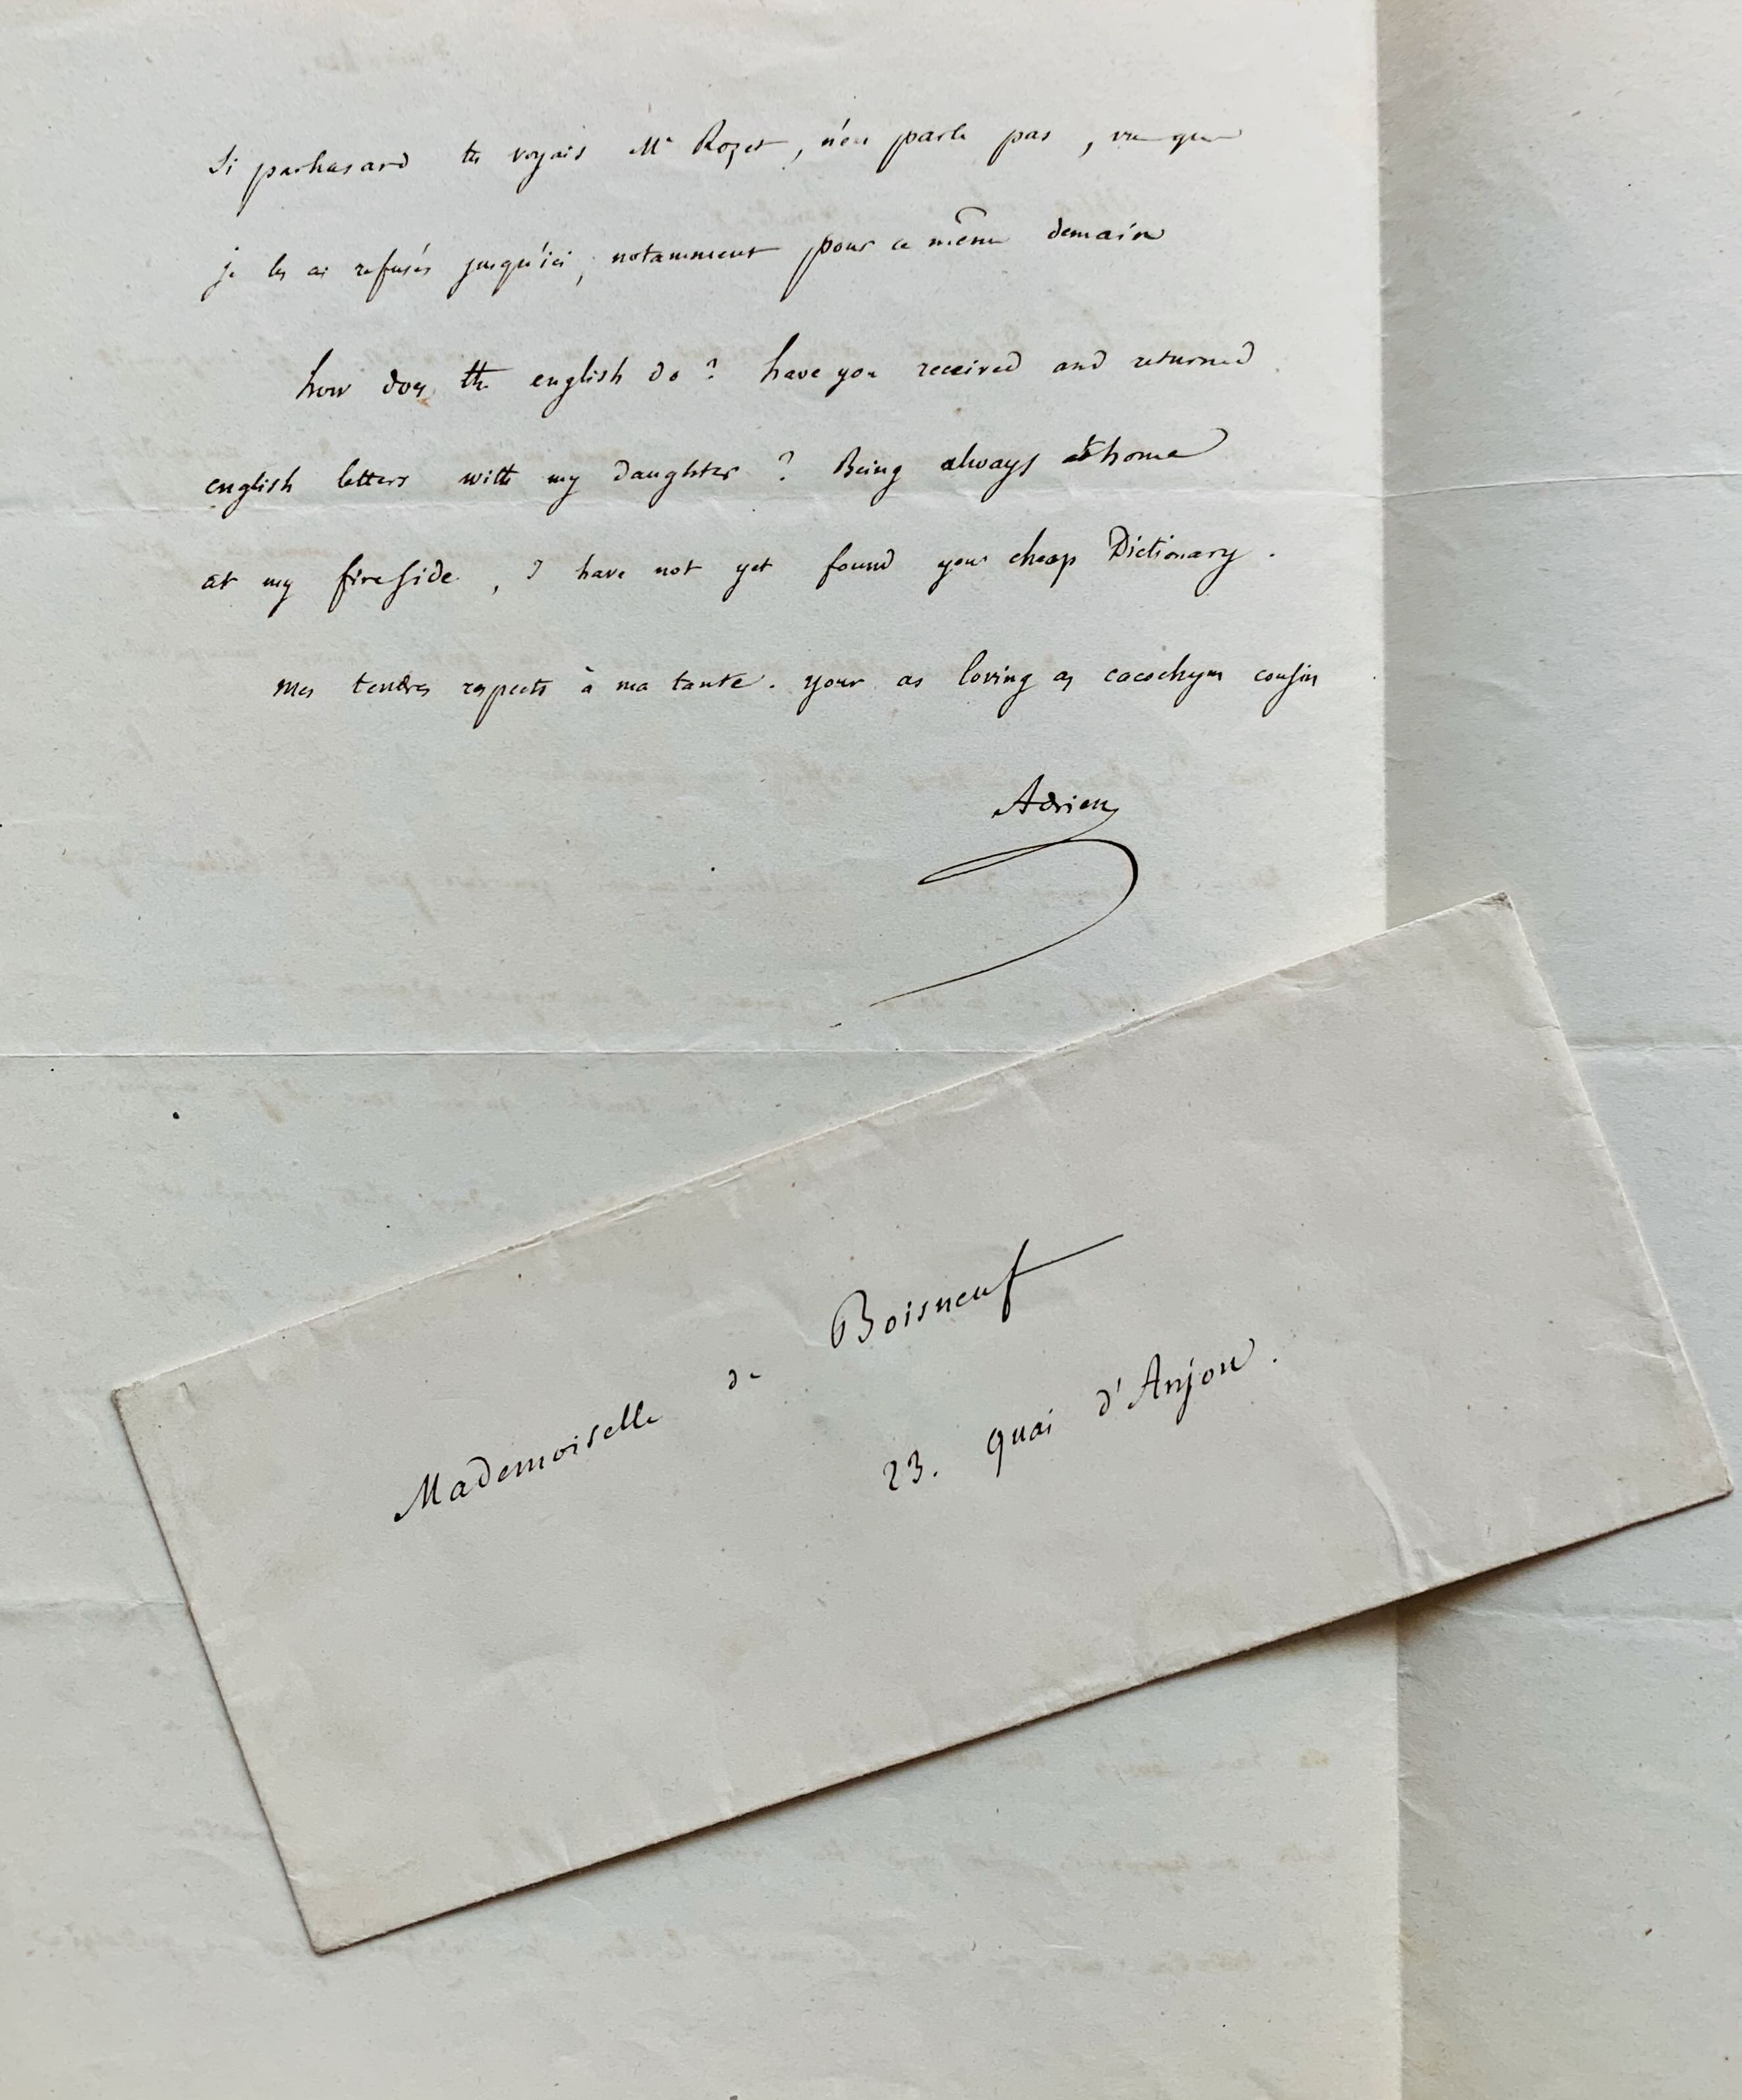 Si parhasard tu voyais Mr Rozet, n'en parle pas, vu que
je les ai refusés jusqu'ici, notamment pour ce même demain
how does the english do? have you received and returned
english letters with my daughter? Being always at home
at my fireside, I have not yet found your cheap Dictionary.
Mes tendres respects à ma tante. your as loving as cacochym cousin
Adrien
Mademoiselle de Boisneuf
23. quai d'Anjou.